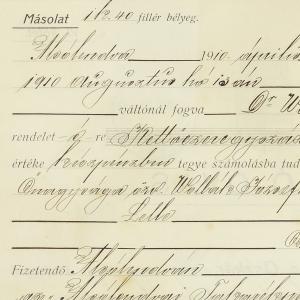 Másolat 1 k 2.40 fillér bélyeg.
Alsólendva 1910. április
1910 augusztus hó 15 án
váltónál fogva Dr W
rendelet é ré Kettőszázegyszáz
értéke készpénzben tegye számolásba tud
Őnagysága özv. Wollák József
Lelle
Fizetendő Alsólendván
az Alsólendvai Takarékp